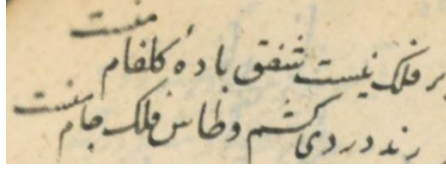 بر فلک نیست شفق باده گلفام منست
رند دردی کشم و طاس فلک جام منست